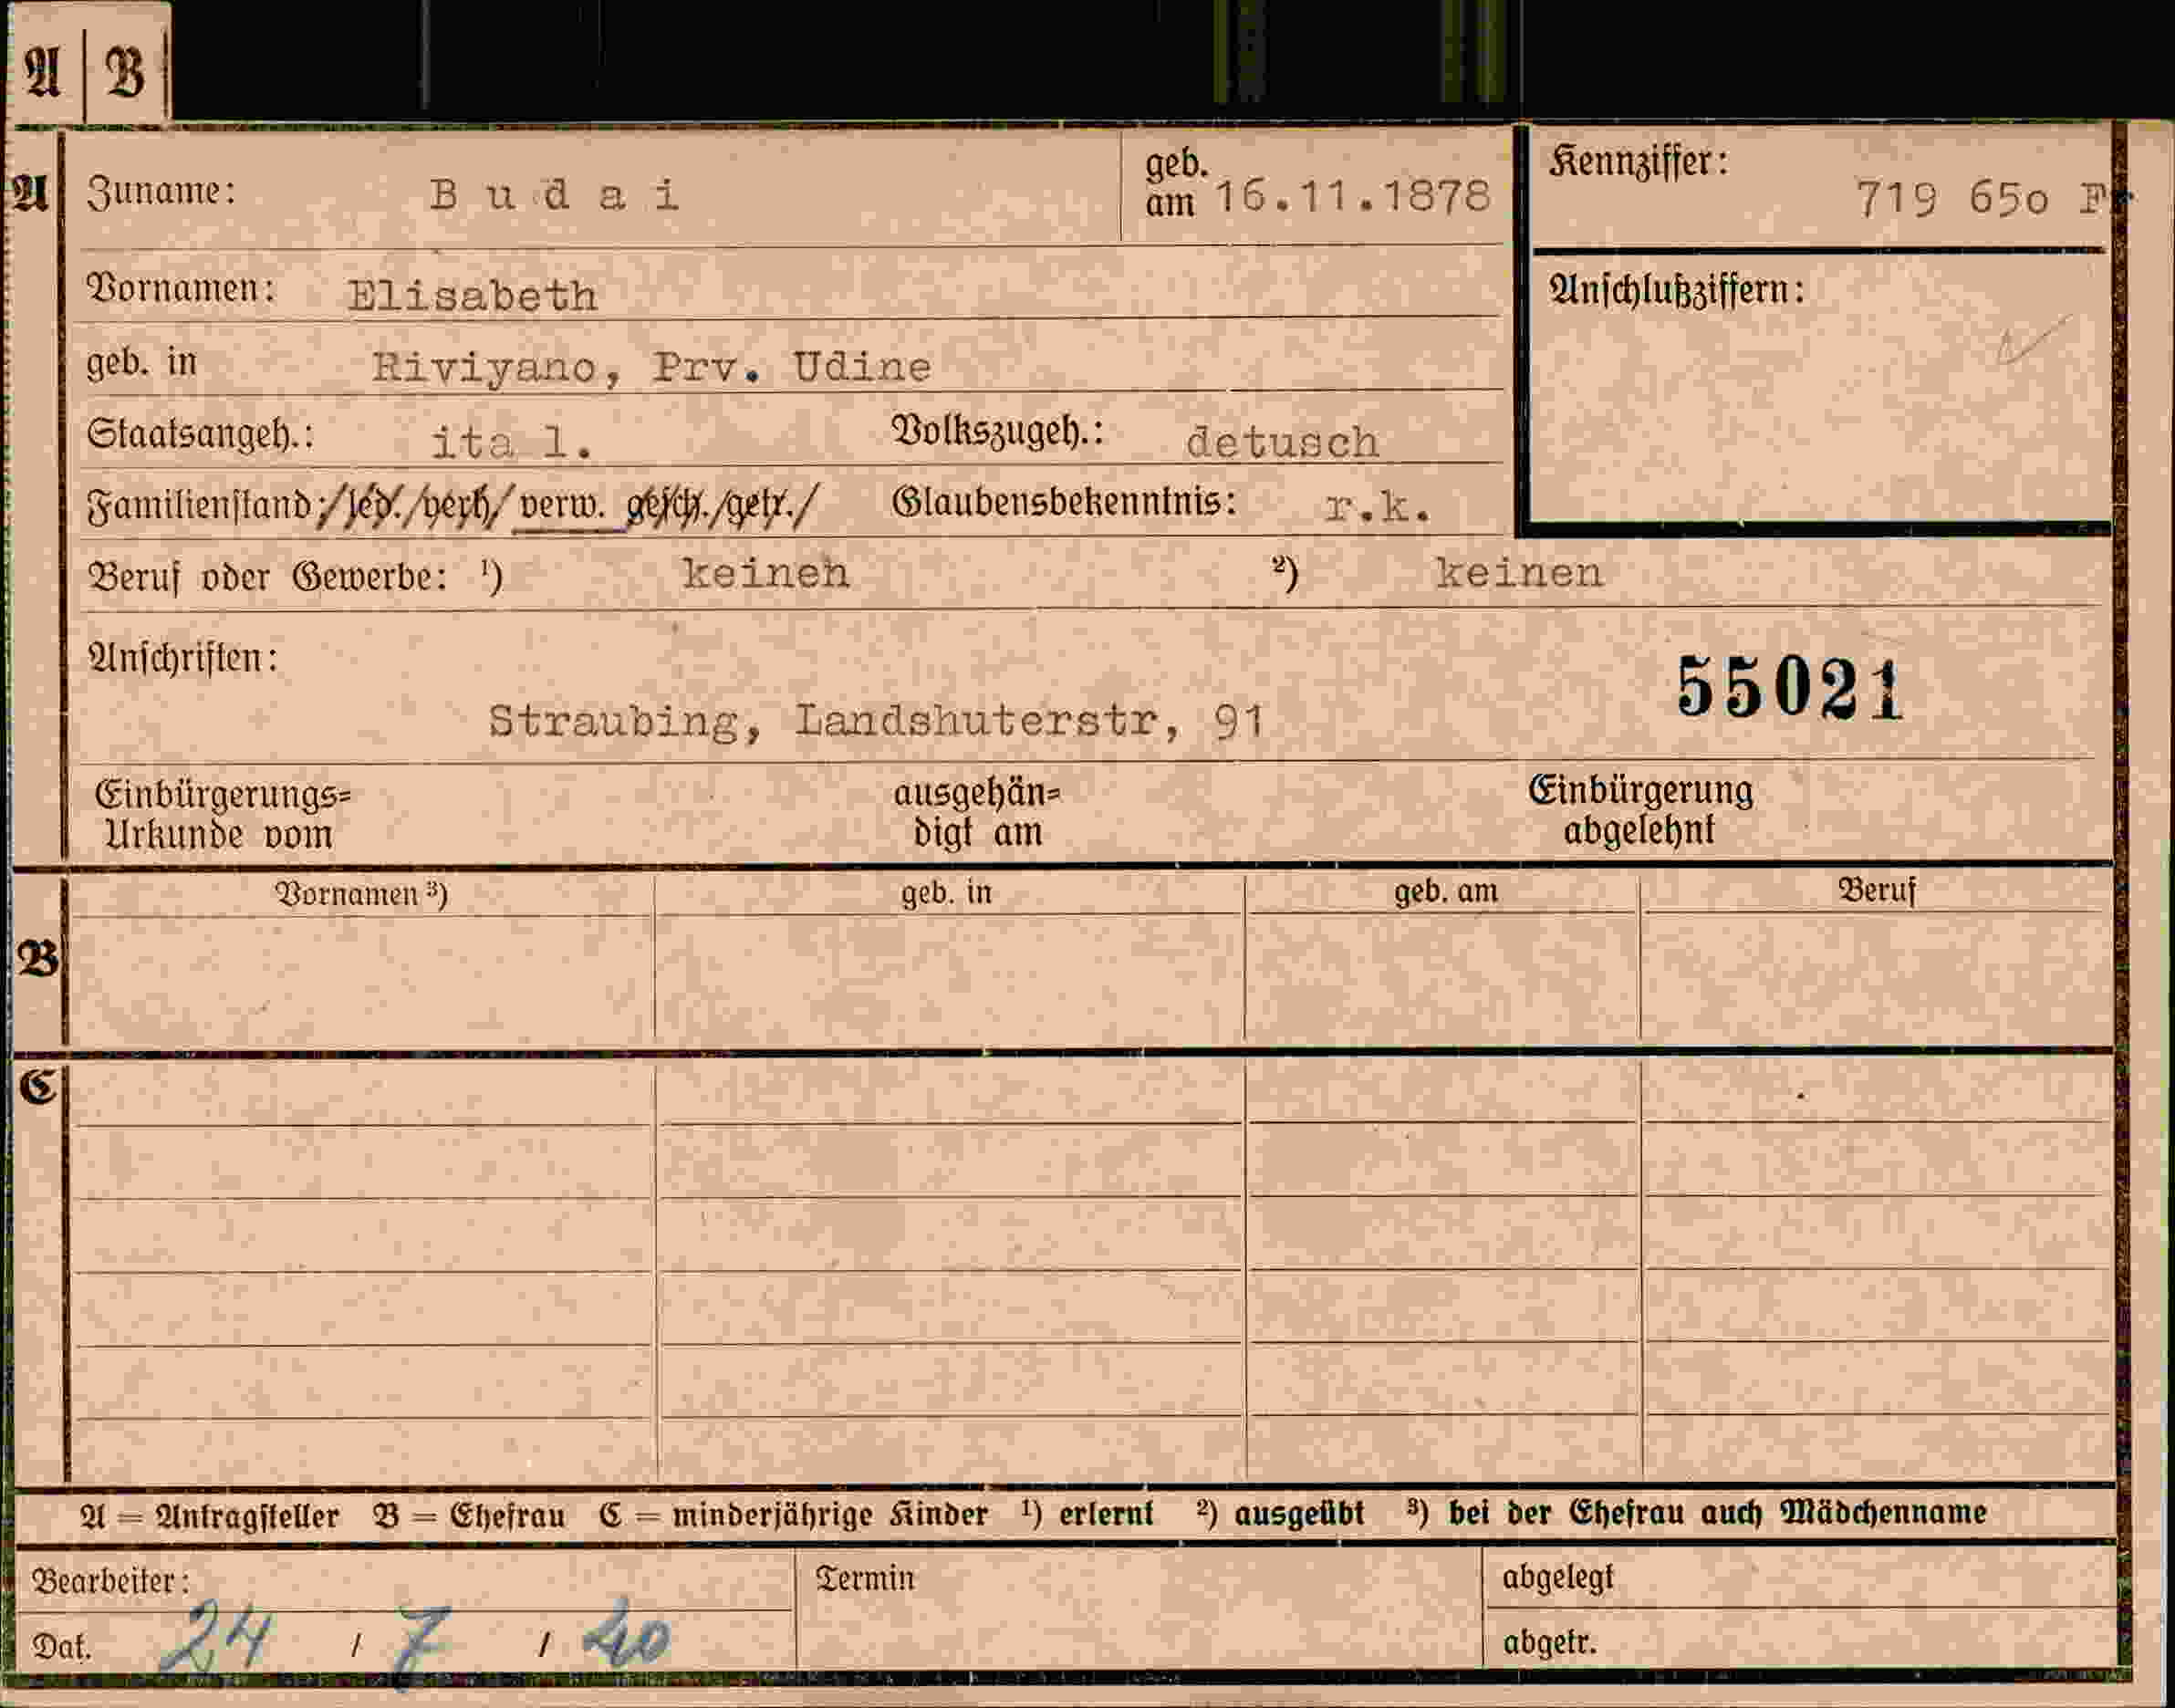 A | B
A
Zuname: Budai geb. am 16.11.1878
Kennziffer: 719 65o F
Vornamen: Elisabeth
Anschlußziffern:
geb. in Riviyano, Prv. Udine
Staatsangeh.: ita l. Volkszugeh.: detusch
Familienstand: /led./verh/ verw. gesch./getr./ Glaubensbekenntnis: r.k.
Beruf oder Gewerbe: ¹) keinen ²) keinen
Anschriften:
55021
Straubing, Landshuterstr, 91
Einbürgerungs= ausgehän= Einbürgerung
Urkunde vom digt am abgelehnt
B
Vornamen ³) geb. in geb. am Beruf
C
A = Antragsteller B = Ehefrau C = minderjährige Kinder ¹) erlernt ²) ausgeübt ³) bei der Ehefrau auch Mädchenname
Bearbeiter: Termin abgelegt
Dat. 24 / 7 / 40 abgetr.